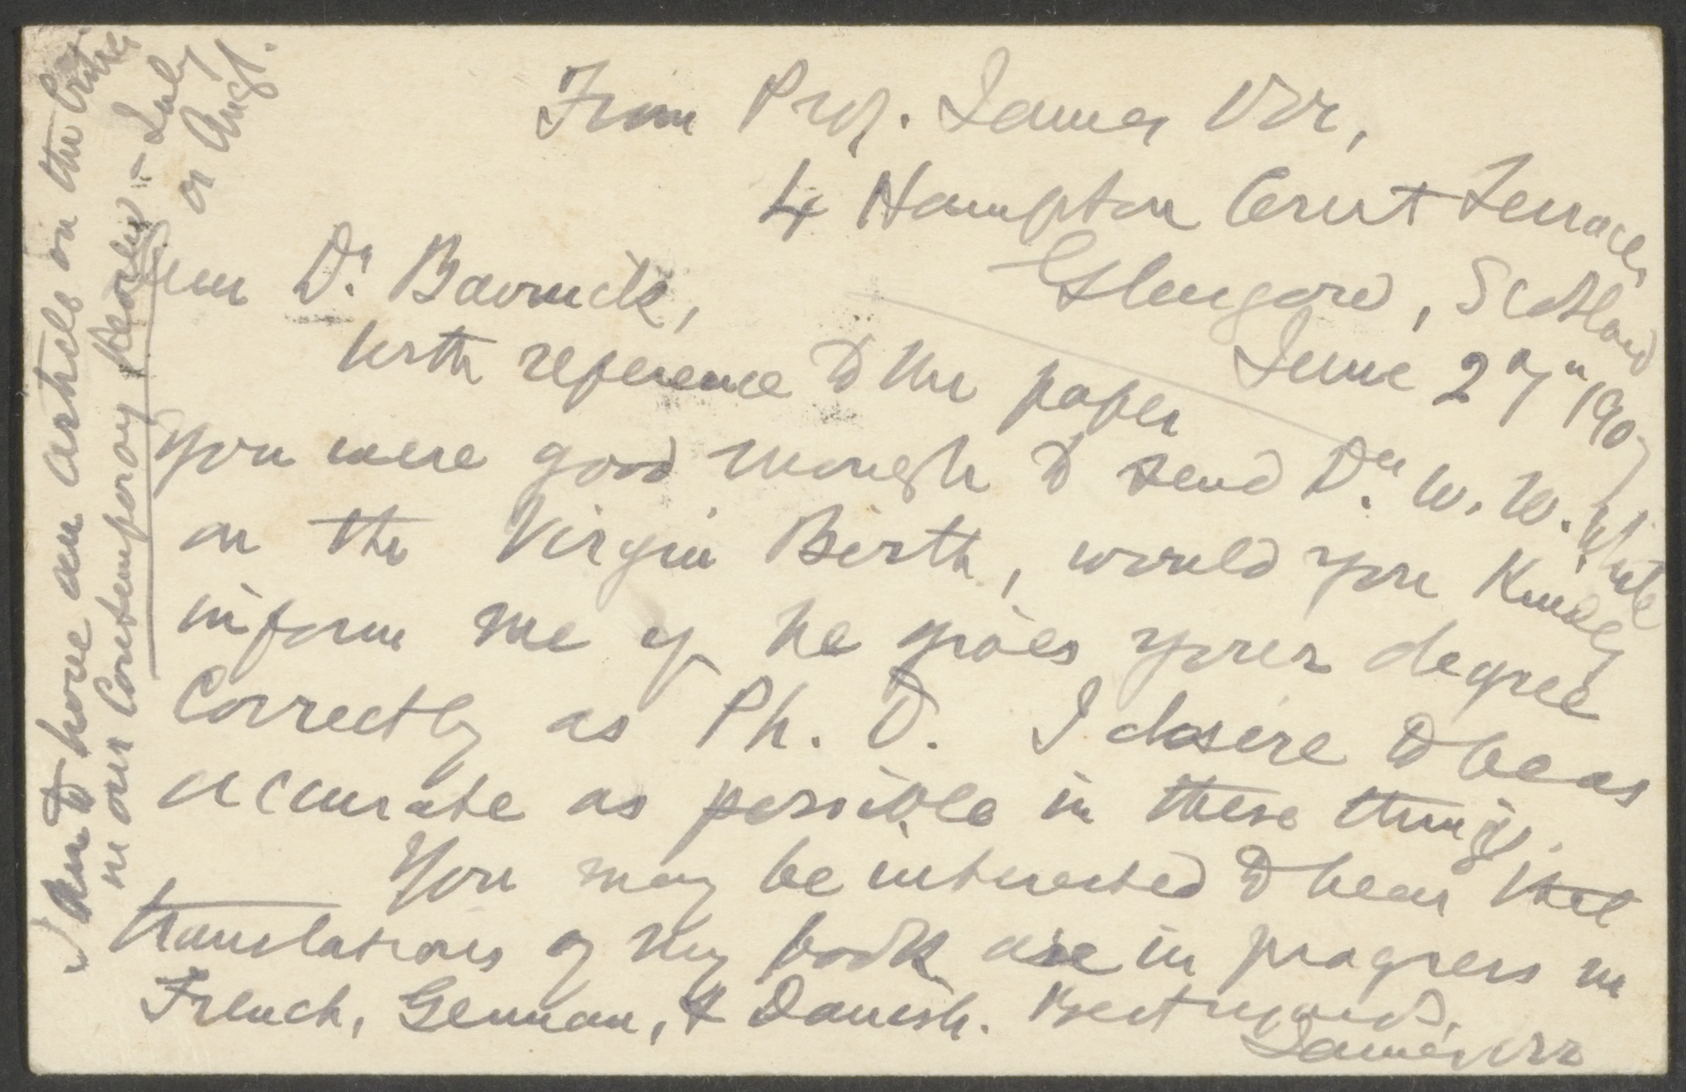 From Prof. James Orr,
4 Hampton Court Terrace,
Glasgow, Scotland
June 27th 1907
Dear Dr. Bavinck,
With reference to the paper
you were good enough to send Dr. W. W. White
on the Virgin Birth, would you kindly
inform me if he gives your degree
correctly as Ph. D. I desire to be as
accurate as possible in these things.
You may be interested to hear that
translations of my book are in progress in
French, German, & Danish. Best regards,
James Orr
I am to have an article on the Critics
in our Contemporary Review - July
or Augt.